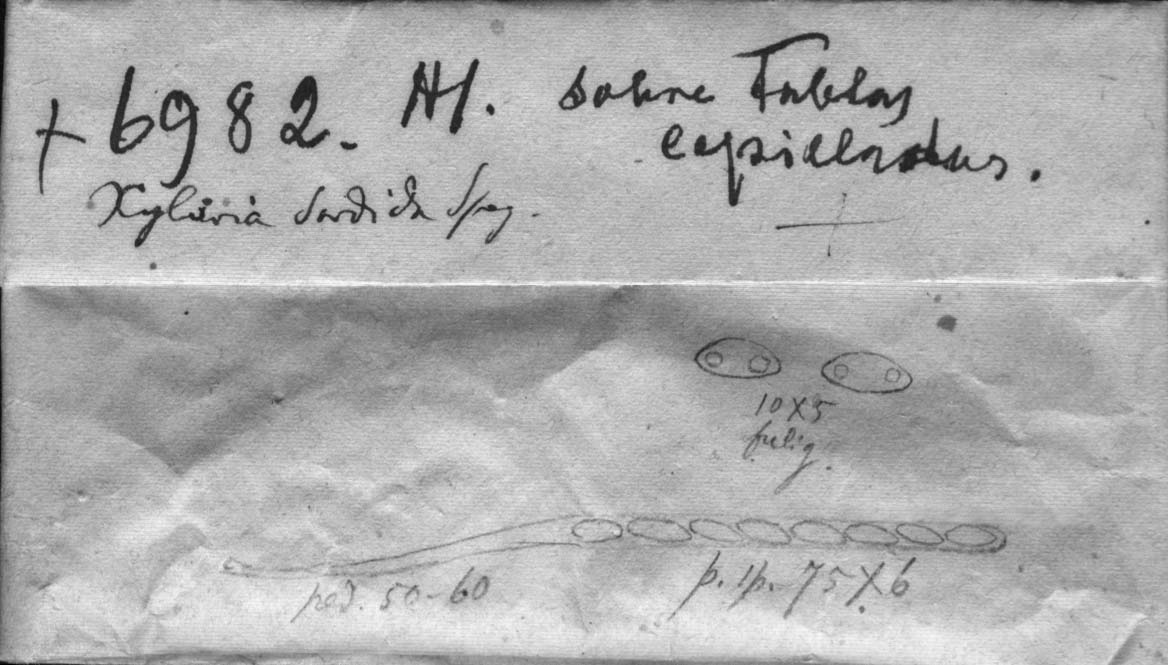 + 6982. M. sobre Tablas
cepilladas.
Xylaria sordida Speg.
10 X 5
fulig.
ped. 50-60
p. sp. 75 X 6